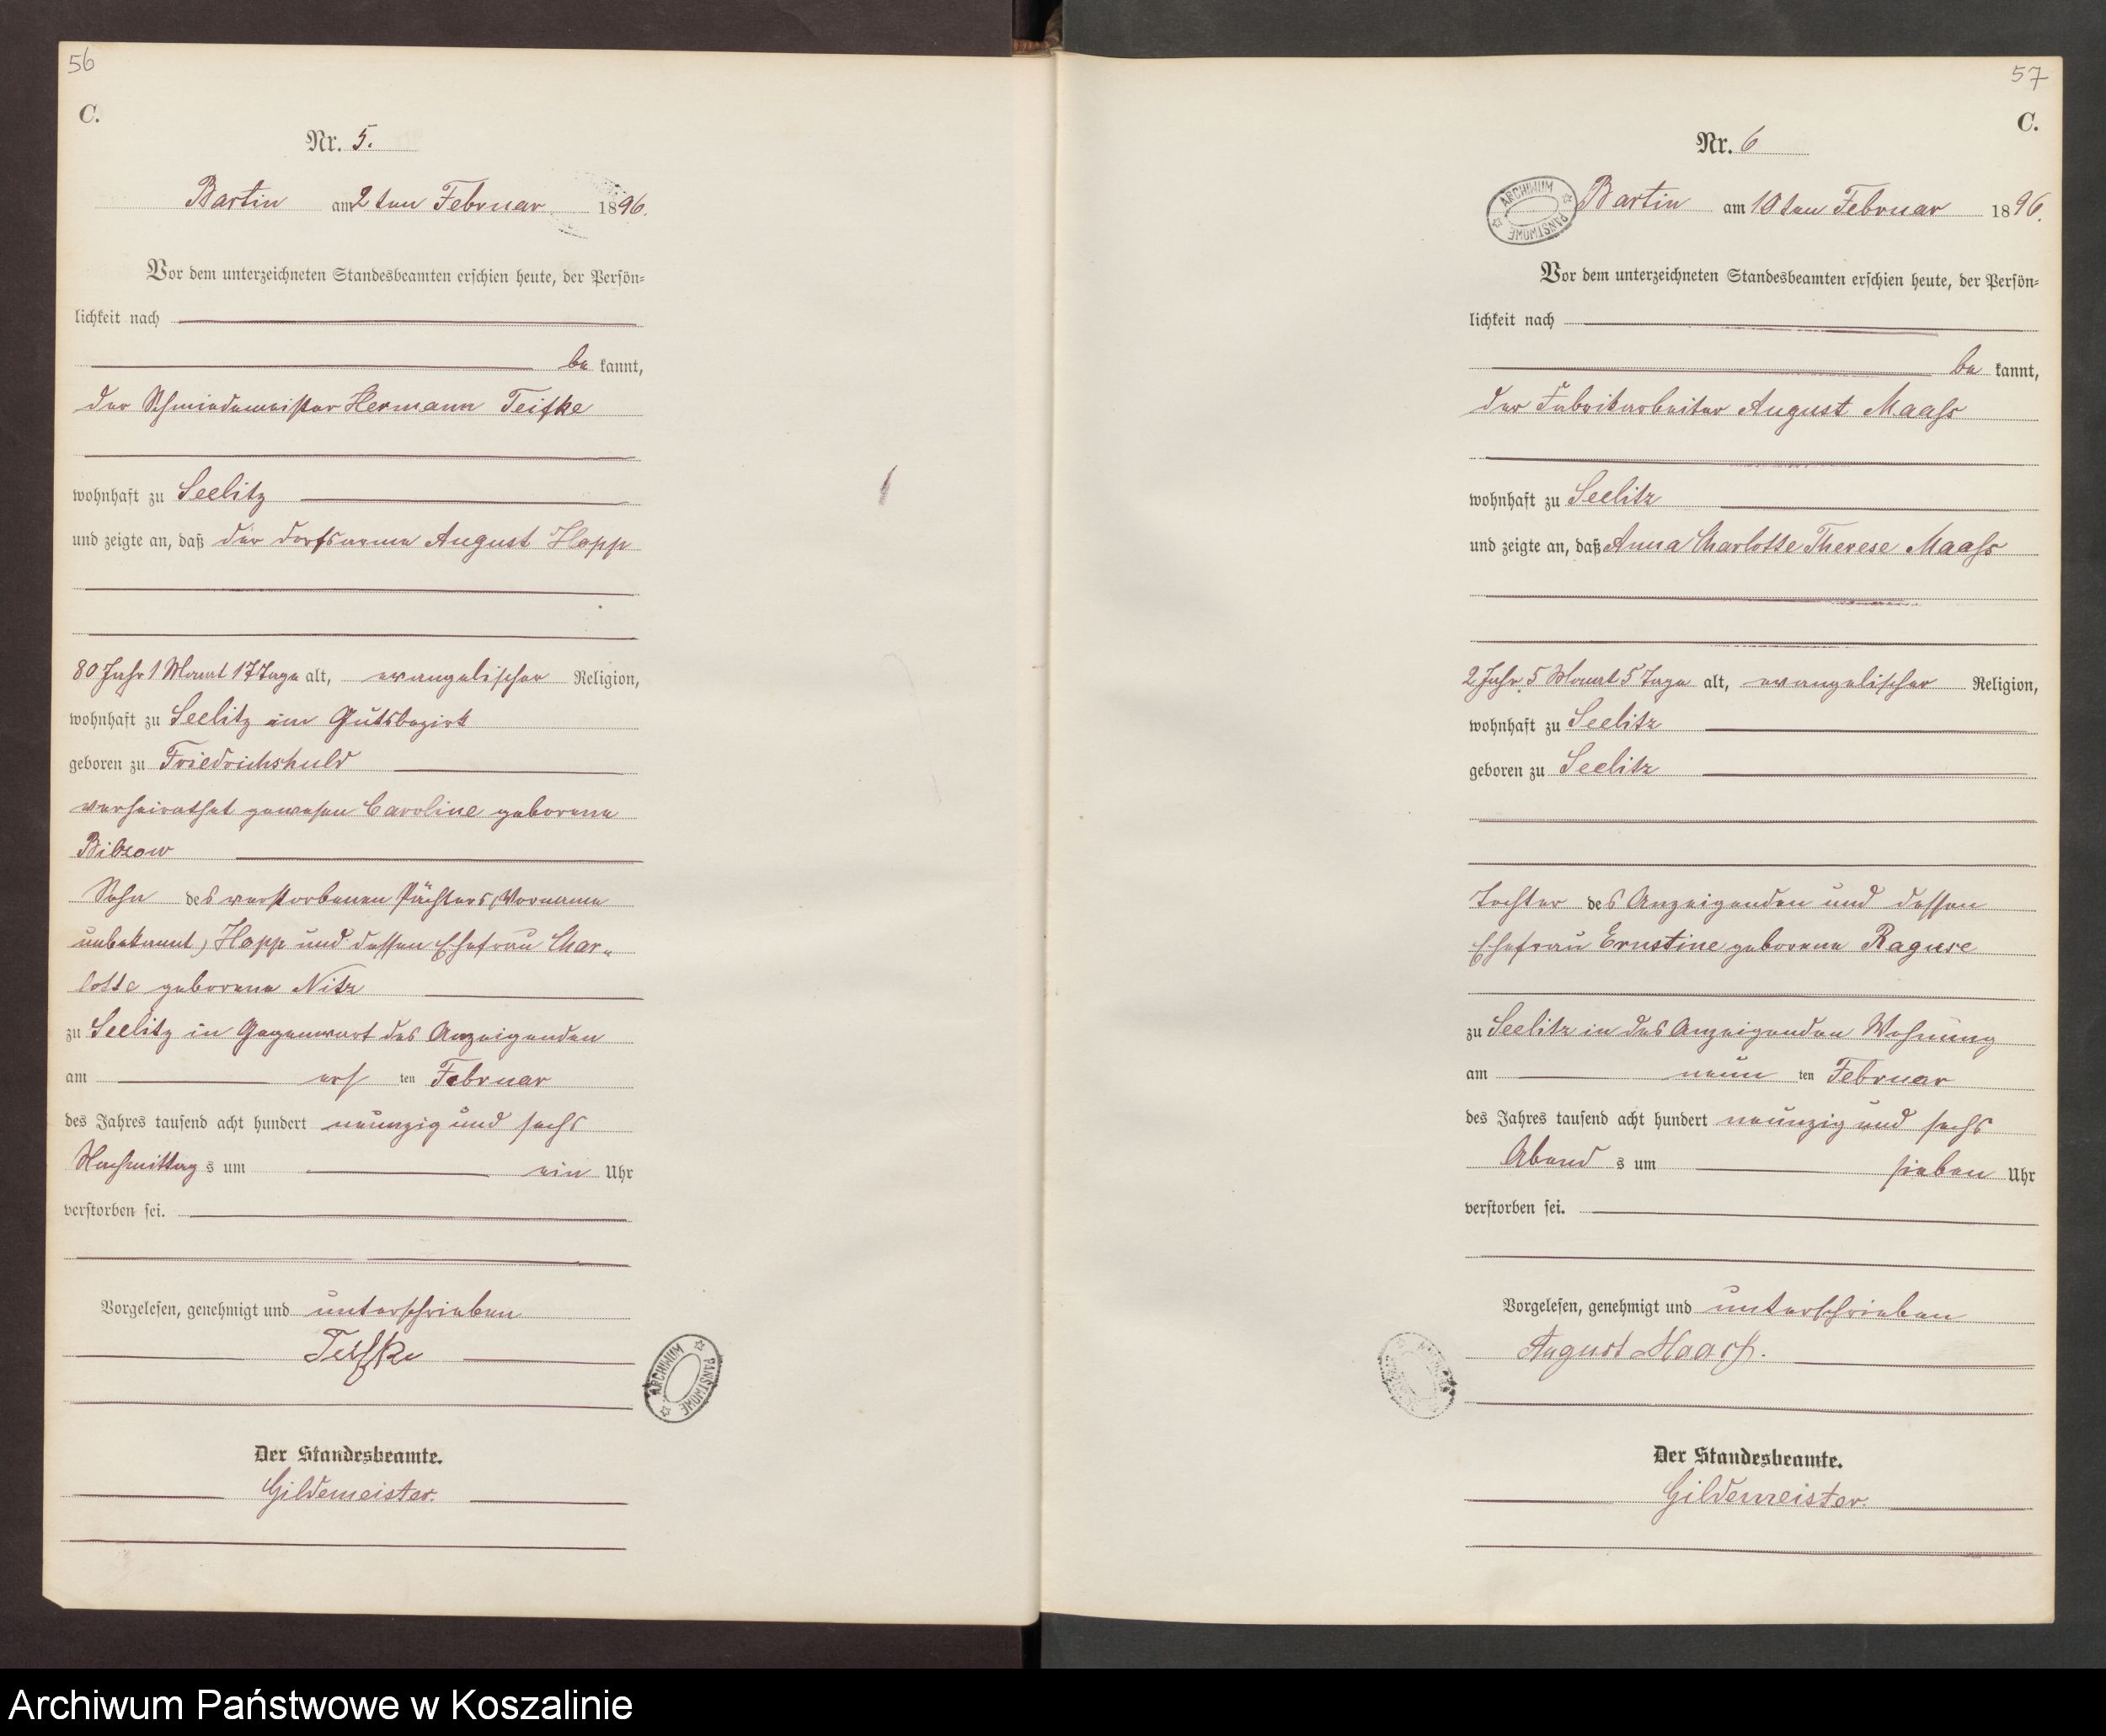 56
C.
Nr. 5.
Bartin am 2ten Februar 1896.
Vor dem unterzeichneten Standesbeamten erschien heute, der Persön-
lichkeit nach
be kannt,
der Schmiedemeister Hermann Teifke
wohnhaft zu Seelitz
und zeigte an, daß der Dorfsarme August Happ
80 Jahr 1 Monat 17 Tage alt, evangelischer Religion,
wohnhaft zu Seelitz im Gutsbezirk
geboren zu Friedrichshuld
verheirathet gewesen Caroline geborene
Bibrow
Sohn des verstorbenen Pächters, (Vorname
unbekannt) Happ und dessen Ehefrau Char-
lotte geborene Nitz
zu Seelitz in Gegenwart des Anzeigenden
am ers ten Februar
des Jahres tausend acht hundert neunzig und sechs
Nachmittag s um ein Uhr
verstorben sei.
Vorgelesen, genehmigt und unterschrieben
Teifke
ARCHIWUM PAŃSTWOWE
Der Standesbeamte.
Gildemeister.
57
C.
Nr. 6
ARCHIWUM PAŃSTWOWE
Bartin am 10ten Februar 1896.
Vor dem unterzeichneten Standesbeamten erschien heute, der Persön-
lichkeit nach
be kannt,
der Fabrikarbeiter August Maaß
wohnhaft zu Seelitz
und zeigte an, daß Anna Charlotte Therese Maaß
2 Jahr 5 Monat 5 Tage alt, evangelischer Religion,
wohnhaft zu Seelitz
geboren zu Seelitz
Tochter des Anzeigenden und dessen
Ehefrau Ernstine geborene Raguse
zu Seelitz in des Anzeigenden Wohnung
am neun ten Februar
des Jahres tausend acht hundert neunzig und sechs
Abend s um sieben Uhr
verstorben sei.
Vorgelesen, genehmigt und unterschrieben
August Maaß.
Der Standesbeamte.
Gildemeister.
Archiwum Państwowe w Koszalinie